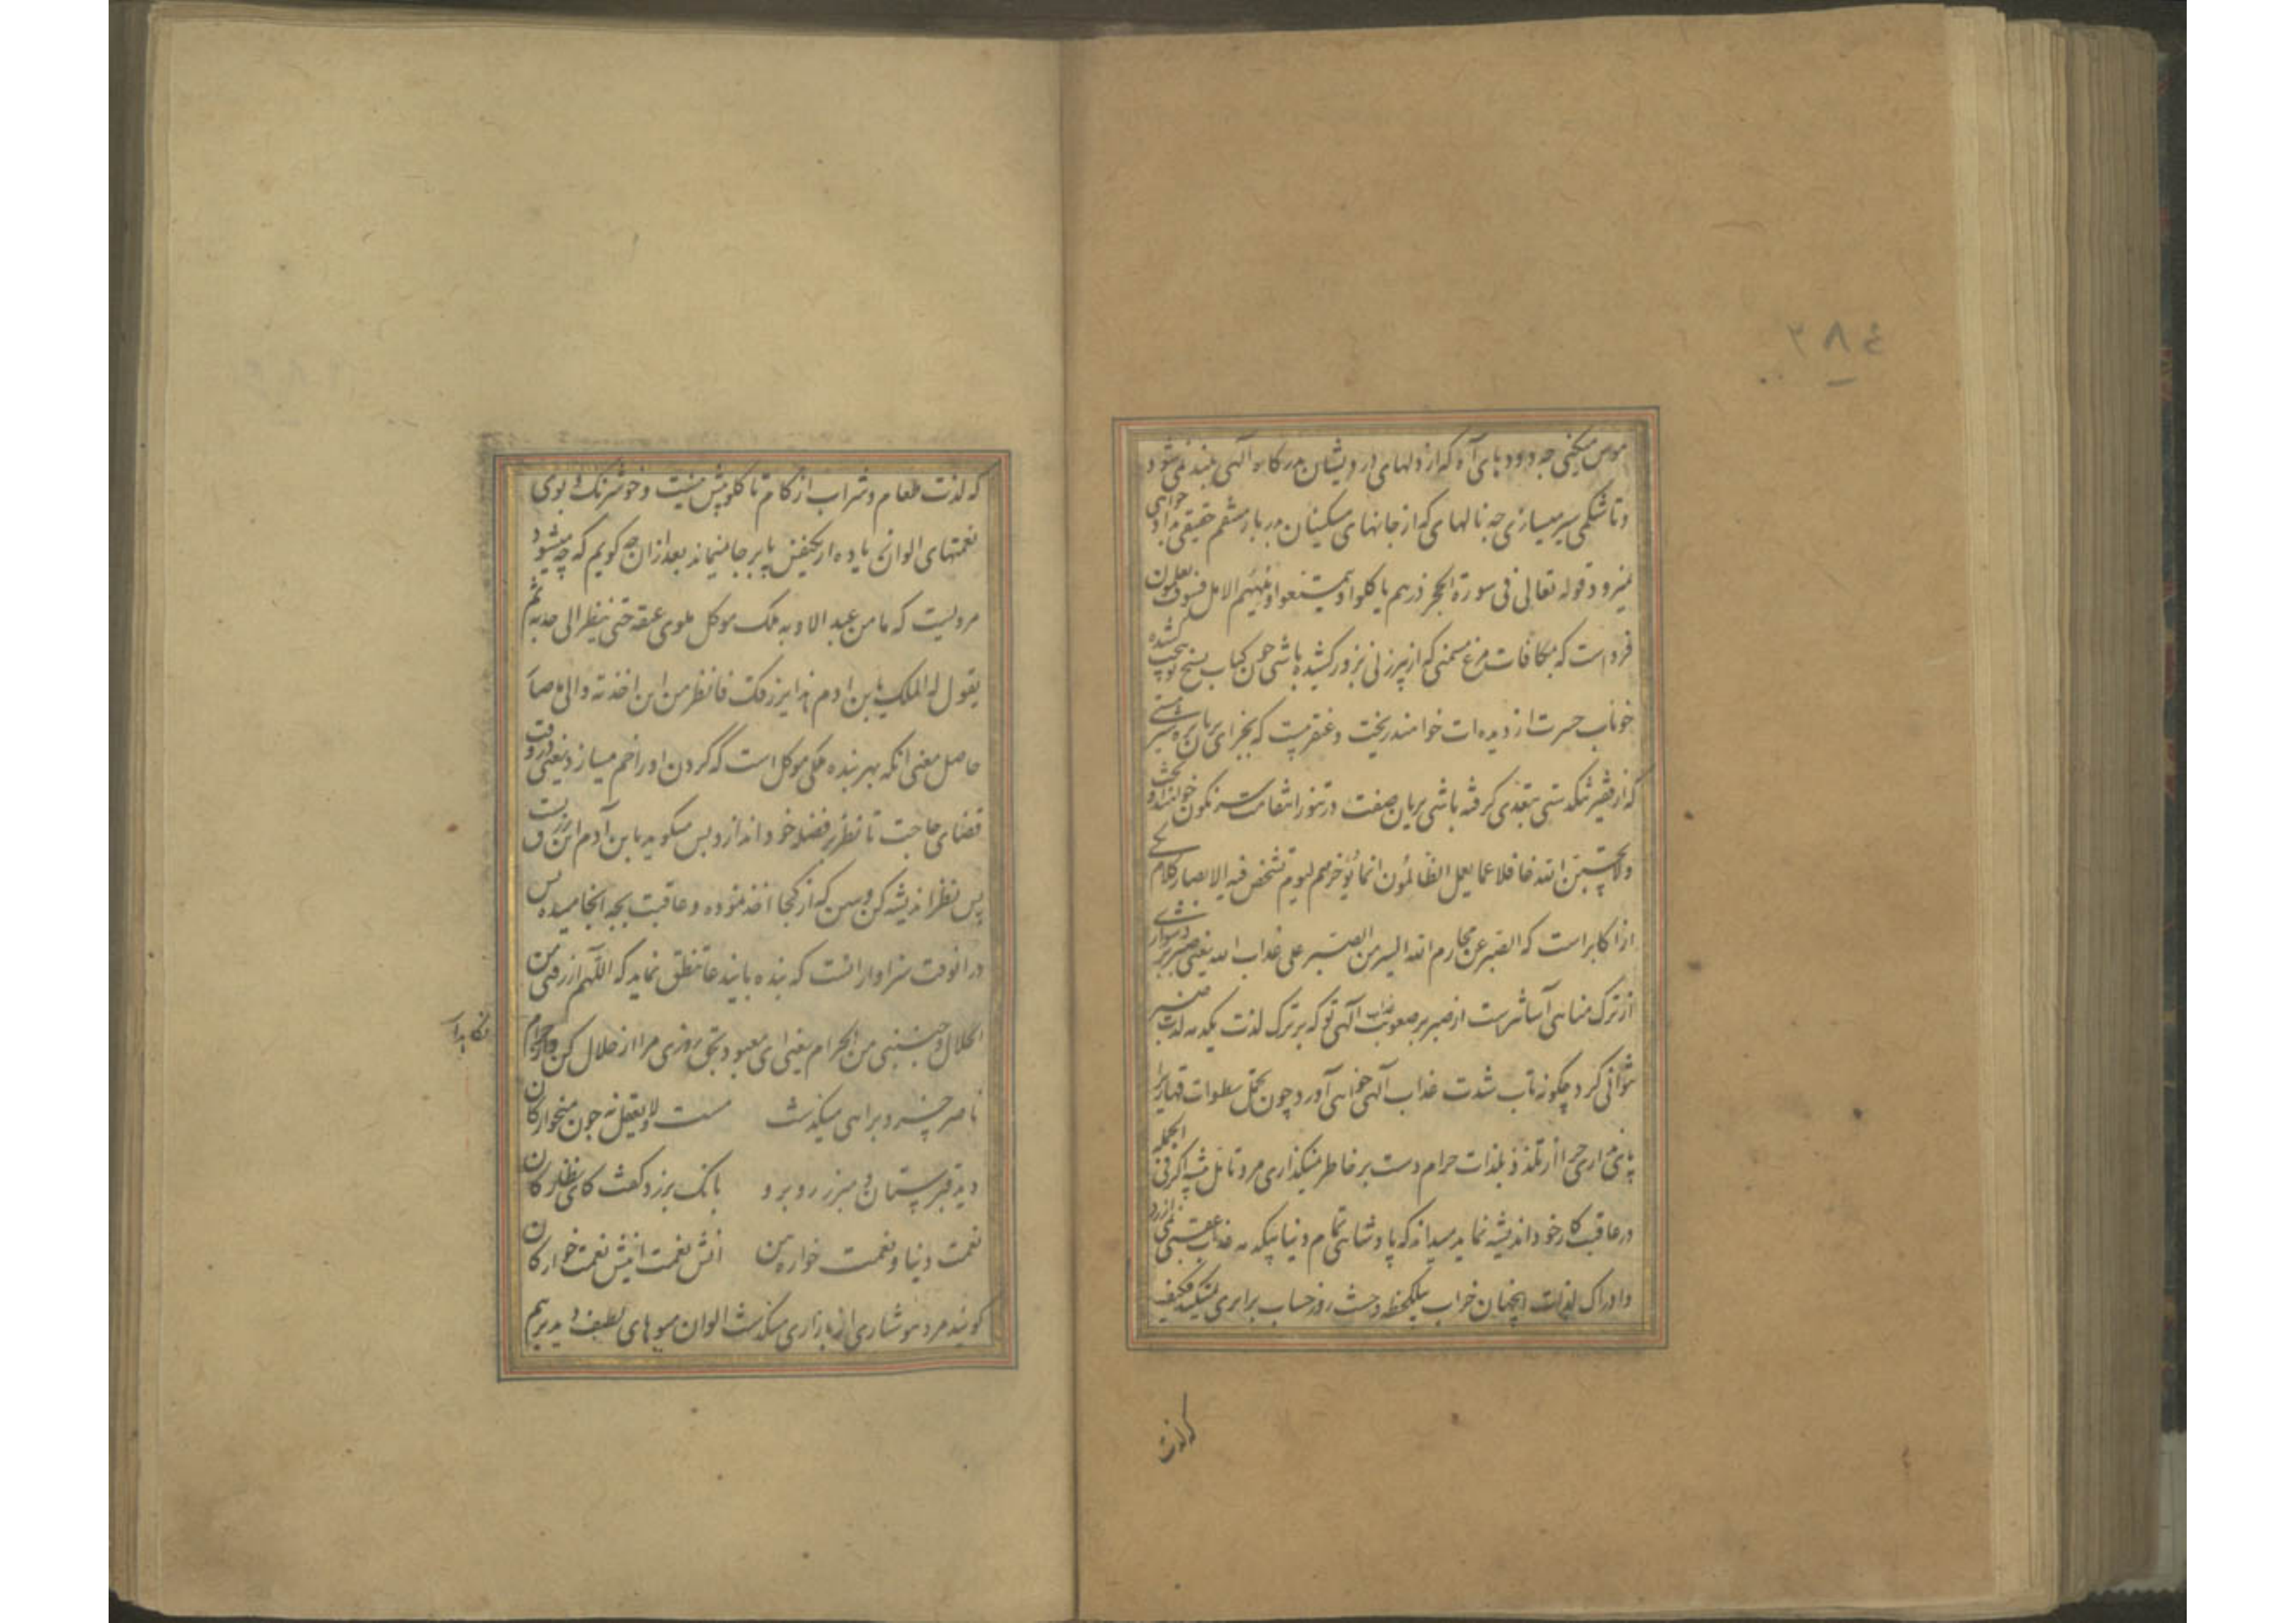 ۳۸٤
چه دودهای آه که از دلهای درویشان بدرگاه آلهی بلند نمی شود
و تا شکمی سیر میسازی چه نالهای که از جانهای مسکینان بدربار منتقم حقیقی بداد خواهی
نمیرود قوله تعالی فی سورة الحجر ذرهم یاکلوا و یتمتعوا و یلههم الامل فسوف یعلمون
فرداست که بمکافات مرغ مسمنی که از پیرزنی بزور کشیده باشی چون کباب بسیخ کشیده
خوناب حسرت از دیده ات خواهند ریخت و عنقریبست که بجزای بریان
که از فقیر تنکدستی بتعدی کرفته باشی بریان صفت در تنور انتقامت سرنکون خواهند
ولا تحسبن الله غافلا عما یعمل الظالمون انما یؤخرهم لیوم تشخص فیه الابصار کلام
از اکابر است که الصبر عن محارم الله ایسر من الصبر علی عذاب الله یعنی صبر بر دشواری
از ترک مناهی آسانترست از صبر بر صعوبت عذاب آلهی تو که بر ترک لذت یکدمه صبر
نتوانی کرد چکونه تاب شدت عذاب آلهی خواهی آورد و چون تحمل سطوات قهاری را
پای داری چرا از تلذذ بلذات حرام دست بر خاطر نمیکذاری مرد تامل پیشه اکر فی الجمله
در عاقبت کار خود اندیشه نماید میداند که پادشاهی تمام دنیا بیکدمه عذاب عقبی نمی ارزد
و ادراک لذات اینجهان خراب بیکلحظه وحشت روز حساب برابری نمیکند فکیف
که لذت
که لذت طعام و شراب از کام تا کلو بیش نیست و خوشرنک و بوی
نعمتهای الوان زیاده از پابرجا نمیماند بعد از ان چه کویم که چه میشود
مرویست که ما من عبد الا و به ملک موکل یلوی عنقه حتی ینظر الی حدثه ثم
یقول له الملک یا بن ادم هذا رزقک فانظر من این اخذته و الی ما صار
حاصل معنی انکه بهر بنده ملکی موکل است که کردن او را خم میسازد یعنی در وقت
قضای حاجت تا نظر بر فضله خود اندازد پس میکوید یا بن آدم این رزق تست
پس نظر اندیشه کن و ببین که از کجا اخذ نموده و عاقبت بچه انجامیده پس
در انوقت سزاوار انست که بنده باین دعا تنطق نماید که اللهم ارزقنی من
الحلال و جنبنی من الحرام یعنی ای معبود بحق روزی مرا از حلال کن و از حرام
نکاهدار
ناصر خسرو براهی میکذشت مست و لایعقل نه چون میخوارکان
دید قبرستان و مبرز روبرو بانک برزد کفت کای نظارکان
نعمت دنیا و نعمت خواره بین اینش نعمت اینش نعمت خوارکان
کویند مرد هوشیاری از بازاری میکذشت الوان میوهای لطیف دید برهم